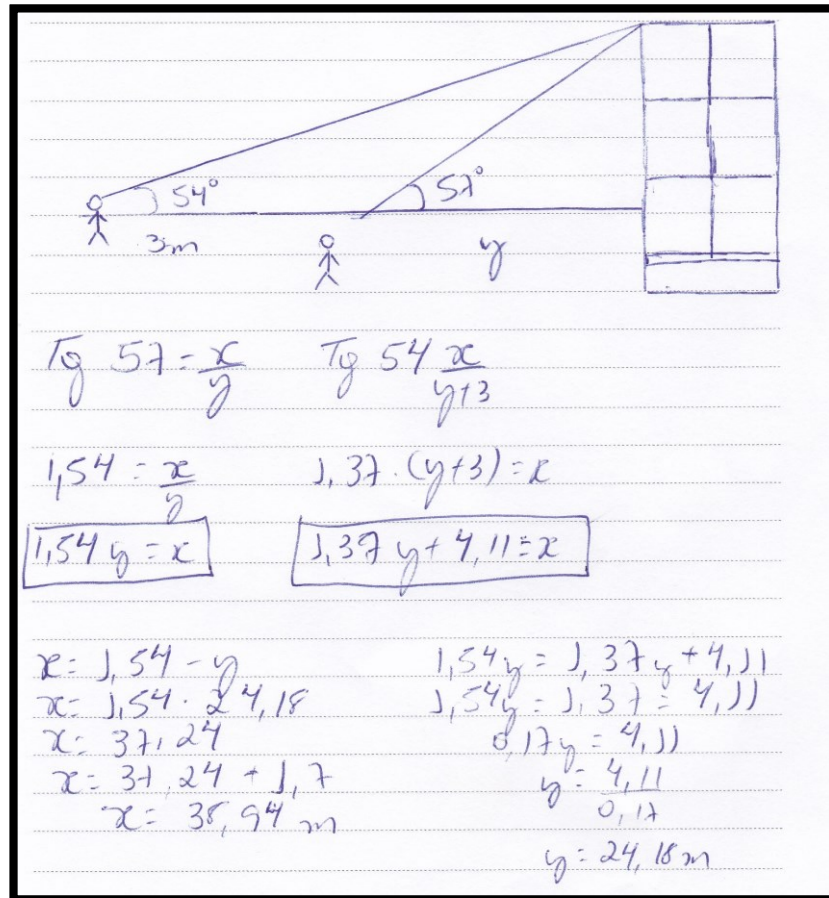 54°
57°
3m
y
Tg 57 = x/y
Tg 54 x/y+3
1,54 = x/y
1,37 · (y+3) = x
1,54 y = x
1,37 y + 4,11 = x
x = 1,54 - y
x = 1,54 · 24,18
x = 37,24
x = 37,24 + 1,7
x = 38,94 m
1,54y = 1,37y + 4,11
1,54y = 1,37 = 4,11
0,17y = 4,11
y = 4,11/0,17
y = 24,18m